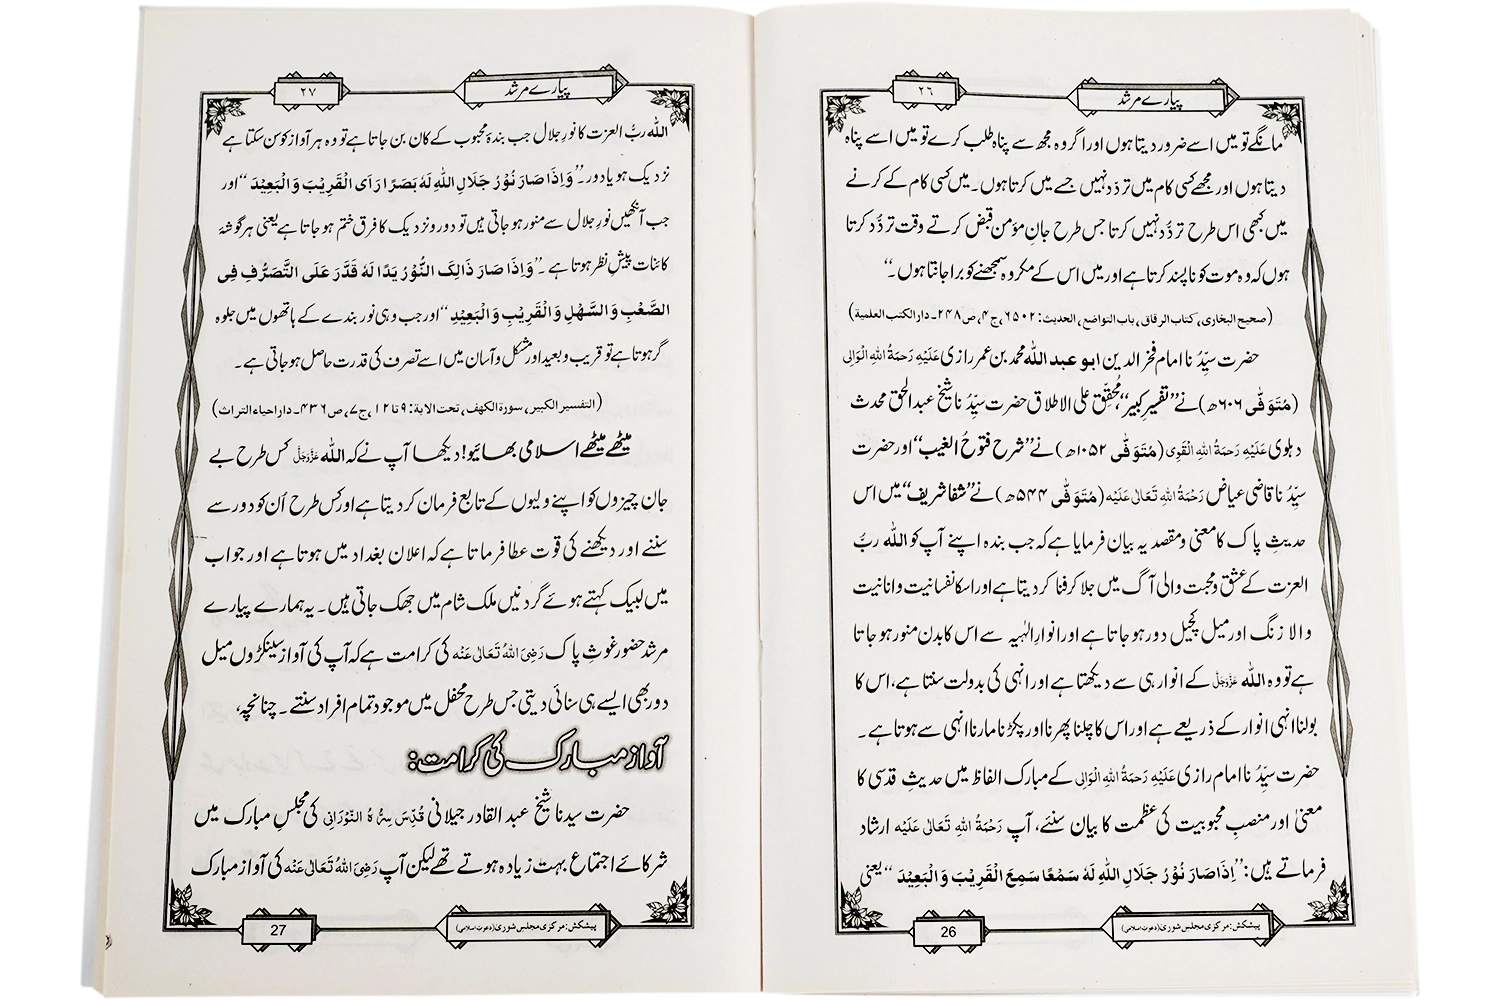 پیارے مرشد
۲٦
مانگے تو میں اسے ضرور دیتا ہوں اور اگر وہ مجھ سے پناہ طلب کرے تو میں اسے پناہ
دیتا ہوں اور مجھے کسی کام میں تردّد نہیں جسے میں کرتا ہوں۔ میں کسی کام کے کرنے
میں کبھی اس طرح تردُّد نہیں کرتا جس طرح جانِ مؤمن قبض کرتے وقت تردُّد کرتا
ہوں کہ وہ موت کو ناپسند کرتا ہے اور میں اس کے مکروہ سمجھنے کو برا جانتا ہوں۔‘‘
(صحیح البخاری، کتاب الرقاق، باب التواضع، الحدیث: ۶۵۰۲، ج۴، ص۲۴۸۔ دارالکتب العلمیة)
حضرت سیِّدُنا امام فخر الدین ابو عبد اللہ محمد بن عمر رازی عَلَیْہِ رَحمَۃُ اللہِ الْوَالِی
(مُتَوَفّٰی ۶۰۶ھ) نے ’’تفسیرِ کبیر‘‘، مُحقِّق علی الاطلاق حضرت سیِّدُنا شیخ عبد الحق محدث
دہلوی عَلَیْہِ رَحمَۃُ اللہِ الْقَوِی (مُتَوَفّٰی ۱۰۵۲ھ) نے ’’شرح فتوحُ الغیب‘‘ اور حضرت
سیِّدُنا قاضی عیاض رَحْمَۃُ اللہِ تَعَالٰی عَلَیْہ (مُتَوَفّٰی ۵۴۴ھ) نے ’’شفا شریف‘‘ میں اس
حدیثِ پاک کا معنی و مقصد یہ بیان فرمایا ہے کہ جب بندہ اپنے آپ کو اللہ ربُّ
العزت کے عشق و محبت والی آگ میں جلا کر فنا کر دیتا ہے اور اسکا نفسانیت و انانیت
والا زنگ اور میل کچیل دور ہو جاتا ہے اور انوارِ الٰہیہ سے اس کا بدن منور ہو جاتا
ہے تو وہ اللہ عَزَّوَجَلَّ کے انوار ہی سے دیکھتا ہے اور انہی کی بدولت سنتا ہے، اس کا
بولنا انہی انوار کے ذریعے ہے اور اس کا چلنا پھرنا اور پکڑنا مارنا انہی سے ہوتا ہے۔
حضرت سیِّدُنا امام رازی عَلَیْہِ رَحمَۃُ اللہِ الْوَالِی کے مبارک الفاظ میں حدیثِ قدسی کا
معنیٰ اور منصبِ محبوبیت کی عظمت کا بیان سنئے، آپ رَحْمَۃُ اللہِ تَعَالٰی عَلَیْہ ارشاد
فرماتے ہیں: ’’اِذَا صَارَ نُوْرُ جَلَالِ اللہِ لَہٗ سَمْعًا سَمِعَ الْقَرِیْبَ وَالْبَعِیْدَ‘‘ یعنی
پیشکش: مرکزی مجلس شوریٰ (دعوتِ اسلامی)
26
پیارے مرشد
۲۷
اللہ ربُّ العزت کا نورِ جلال جب بندۂ محبوب کے کان بن جاتا ہے تو وہ ہر آواز کو سن سکتا ہے
نزدیک ہو یا دور۔ ’’وَاِذَا صَارَ نُوْرُ جَلَالِ اللہِ لَہٗ بَصَرًا رَاَی الْقَرِیْبَ وَالْبَعِیْدَ‘‘ اور
جب آنکھیں نورِ جلال سے منور ہو جاتی ہیں تو دور و نزدیک کا فرق ختم ہو جاتا ہے یعنی ہر گوشۂ
کائنات پیشِ نظر ہوتا ہے۔ ’’وَاِذَا صَارَ ذَالِکَ النُّوْرُ یَدًا لَہٗ قَدَّرَ عَلَی التَّصَرُّفِ فِی
الصَّعْبِ وَالسَّھْلِ وَالْقَرِیْبِ وَالْبَعِیْدِ‘‘ اور جب وہی نور بندے کے ہاتھوں میں جلوہ
گر ہوتا ہے تو قریب و بعید اور مشکل و آسان میں اسے تصرف کی قدرت حاصل ہو جاتی ہے۔
(التفسیر الکبیر، سورة الکھف، تحت الایة: ۹ تا ۱۲، ج۷، ص۴۳۶۔ داراحیاء التراث)
میٹھے میٹھے اسلامی بھائیو! دیکھا آپ نے کہ اللہ عَزَّوَجَلَّ کس طرح بے
جان چیزوں کو اپنے ولیوں کے تابع فرمان کر دیتا ہے اور کس طرح اُن کو دور سے
سننے اور دیکھنے کی قوت عطا فرماتا ہے کہ اعلان بغداد میں ہوتا ہے اور جواب
میں لبیک کہتے ہوئے گردنیں ملک شام میں جھک جاتی ہیں۔ یہ ہمارے پیارے
مرشد حضور غوثِ پاک رَضِیَ اللہُ تَعَالٰی عَنْہ کی کرامت ہے کہ آپ کی آواز سینکڑوں میل
دور بھی ایسے ہی سنائی دیتی جس طرح محفل میں موجود تمام افراد سنتے۔ چنانچہ،
آواز مبارک کی کرامت:
حضرت سیدنا شیخ عبد القادر جیلانی قُدِّسَ سِرُّہُ النُّوْرَانِی کی مجلسِ مبارک میں
شرکائے اجتماع بہت زیادہ ہوتے تھے لیکن آپ رَضِیَ اللہُ تَعَالٰی عَنْہ کی آواز مبارک
پیشکش: مرکزی مجلس شوریٰ (دعوتِ اسلامی)
27